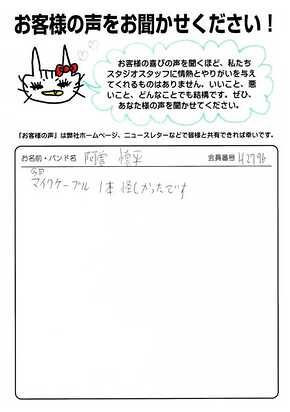 お客様の声をお聞かせください！
お客様の喜びの声を聞くほど、私たち
スタジオスタッフに情熱とやりがいを与え
てくれるものはありません。いいこと、悪
いこと、どんなことでも結構です。ぜひ、
あなた様の声を聞かせてください。
「お客様の声」は弊社ホームページ、ニュースレターなどで皆様と共有できれば幸いです。
お名前・バンド名 阿宮 惇平 会員番号 42796
今日
マイクケーブル 1本 怪しかったです